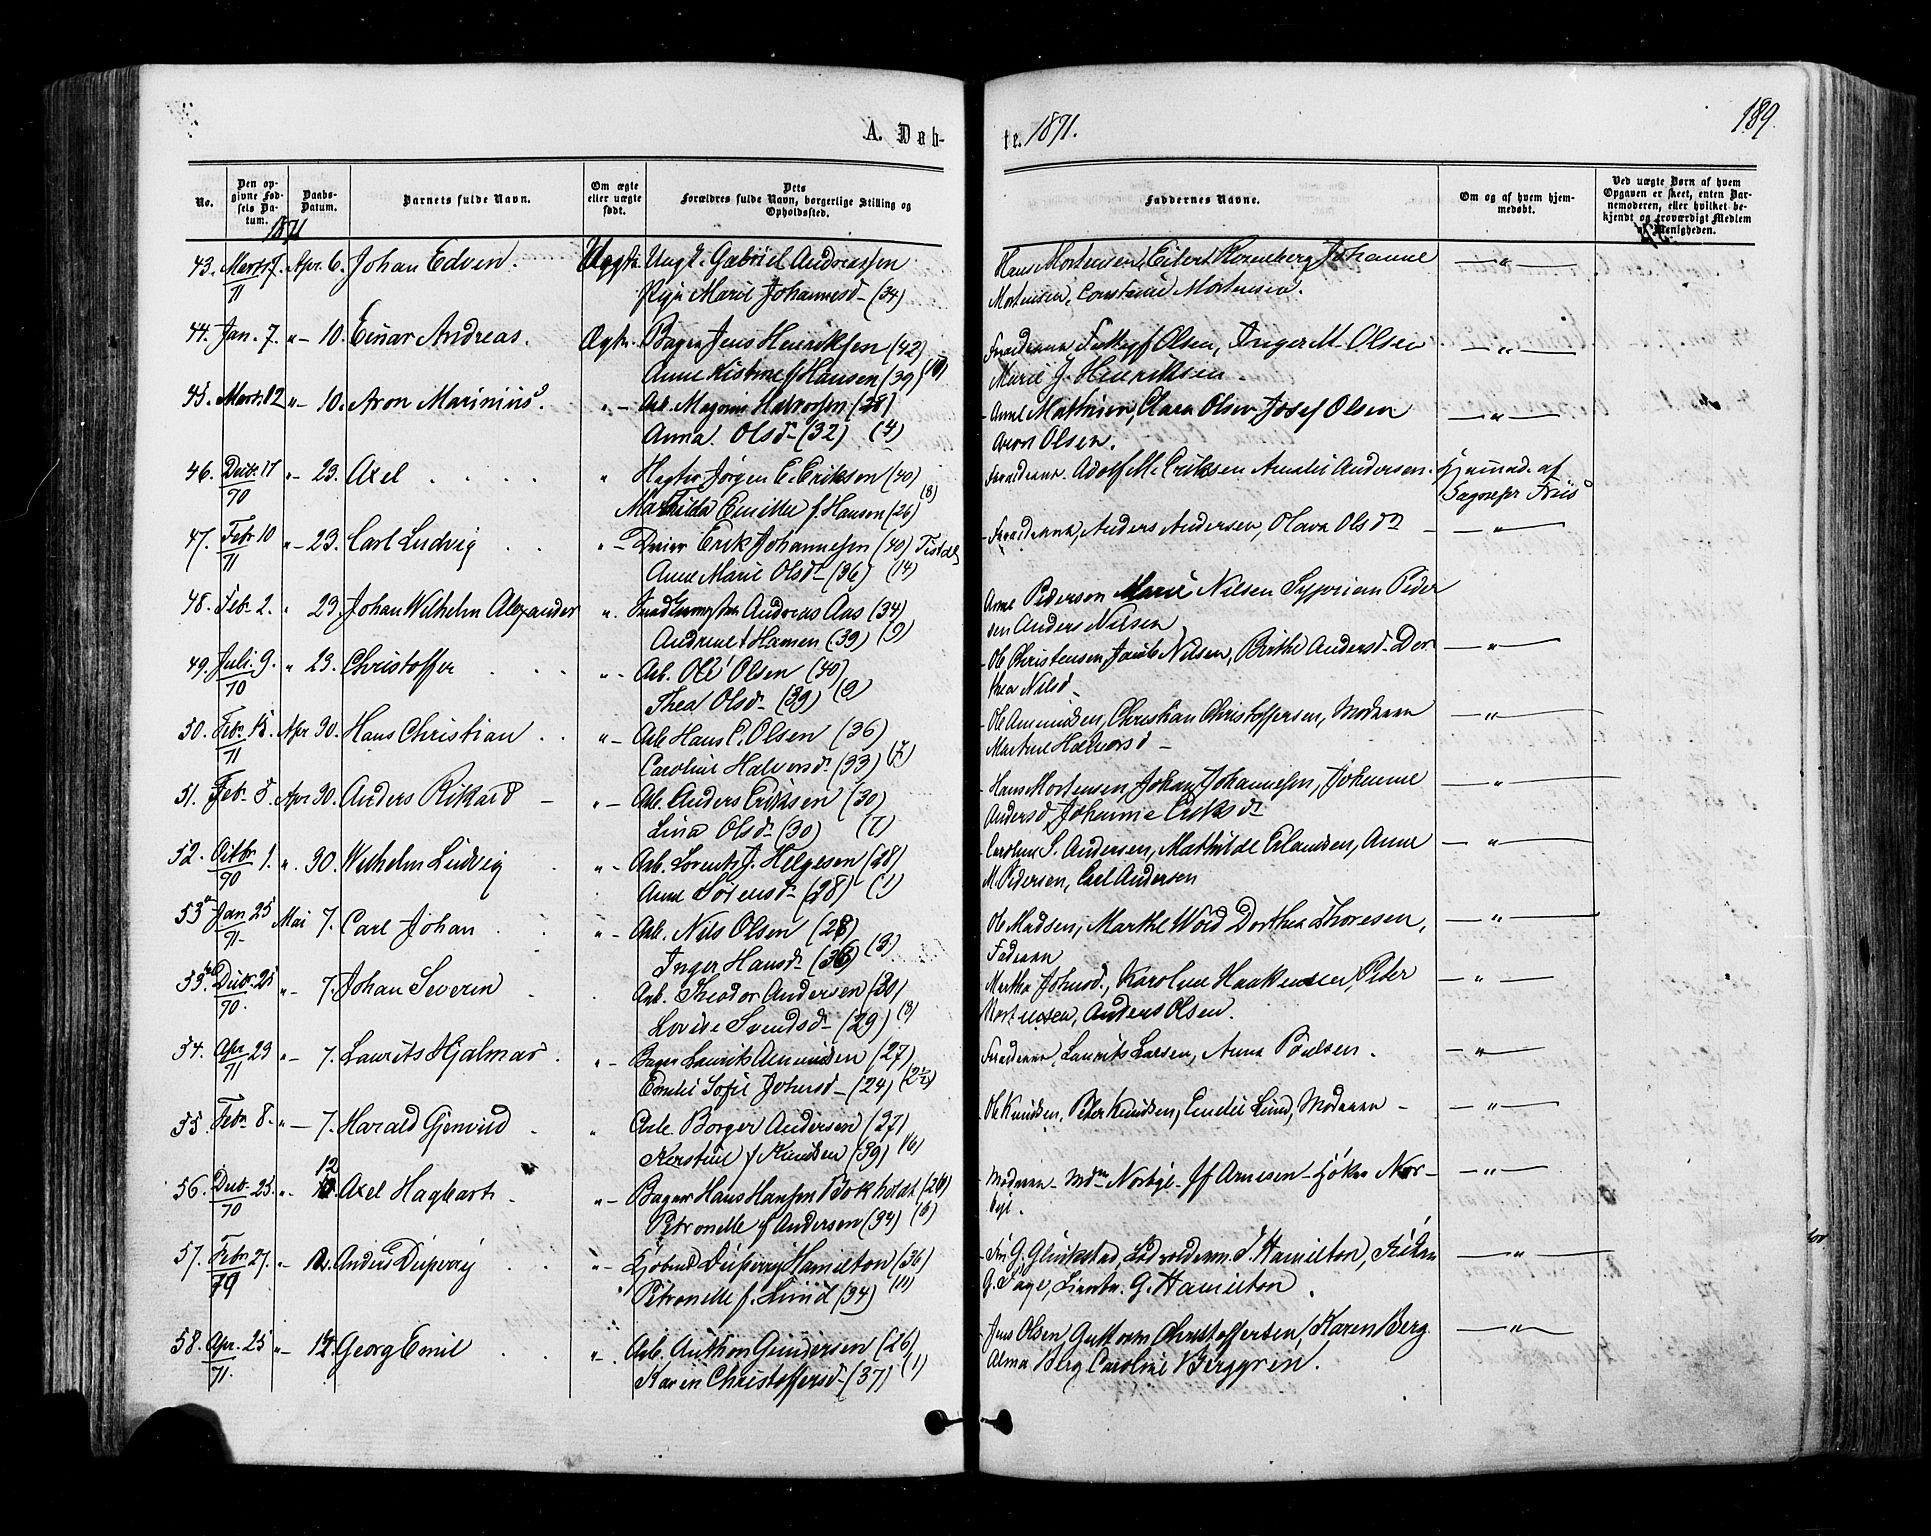 189.
A. Døb-
te. 1871.
No.
Den op-
givne Fød-
sels Da-
tum.
Daabs-
Datum.
Barnets fulde Navn.
Om ægte
eller uægte
født.
Dets
Forældres fulde Navn, borgerlige Stilling og
Opholdssted.
Faddernes Navne.
Om og af hvem hjem-
medøbt.
Ved uægte Børn af hvem
Opgaven er skeet, enten Bar-
nemoderen, eller hvilket be-
kjendt og troværdigt Medlem
af Menigheden.
1871
43. Marts 7. Apr. 6. Johan Edven. Uægte Ungk. Gabriel Andreassen
71 Pige Marie Johannesd. (34)
Hans Mortensen, Eilert Rosenberg, Johanne
Mortensen, Constanse Mortensen.
44. Jan. 7. " - 10. Einar Andreas. Ægte. Bager Jens Henriksen (42)
Anne Kistine f. Hansen (39)
Forældrene, Olsen, Inger M. Olsen
Marie J. Henriksen.
45. Marts 12 " - 10. Aron Marinius. " - Arb. Magnus Halvorsen (28)
Anna Olsd. (32) (4)
Anne Mathisen, Clara Olsen, Josef Olsen
Aron Olsen.
46. Decbr. 17 " - 23. Axel . . . . " Jørgen E. Eriksen (40)
70 Mathilda Emilie f. Hansen (26) (8)
Forældrene. Adolf M. Eriksen Amalie Andersen. Hjemmed. af
Friis
47. Febr. 10 " - 23. Carl Ludvig . . " - Dreier Erik Johannesen (40) Tistdl.
71 Anne Marie Olsd. (36) (14)
Forældrene, Anders Andersen, Olava Olsdr. - "
48. Febr. 2. " 23. Johan Wilhelm Alexander ". Andreas Aas (34)
Andrine f. Hansen (39) (9)
Anne Pederson Marie Nilsen Syprian Peder
sen Anders Nilsen
49. Juli. 9. " 23. Christoffer . . . " - Arb. Ole Olsen (40)
70 Thea Olsd. (39) (9)
Ole Christensen, Jacob Nilsen, Birthe Andersd. Dor-
thea Nilsd.
50. Febr. 15. Apr 30. Hans Christian . . " - Arb Hans C. Olsen (36)
71 Caroline Halvorsd. (33)
Ole Amundsen, Christian Christoffersen, Moderen
Martine Halvorsd.
51. Feb. 8. Apr 30. Anders Rikard - " - Arb. Anders Eriksen (30)
Lina Olsd. (30) (7)
Hans Mortensen, Johan Johannesen, Johanne
Andersd, Johanne Eriksdr.
52. Octbr. 1. " 30. Wilhelm Ludvig . " - Arb. Lorents J. Helgesen (28)
70 Anne Sørensd. (28) (1)
Caroline S. Andersen, Mathilde Erlandsen, Anne
M. Pedersen, Carl Andersen
53 a Jan. 25 Mai 7. Carl Johan . . " - Arb. Nils Olsen (28)
71. Inger Hansd. (36) (3)
Ole Madsen, Marthe Word Dorthea Thoresen,
Faderen
53. b Decbr. 25 " - 7. Johan Severin . . Arb. Theodor Andersen (30)
70. Lovise Svendsd. (29) (3)
Marthe Johnsd., Karoline Haakensen, Peter
Mortensen, Anders Olsen.
54. Apr 23 " - 7. Laurits Hjalmar. " - Bager Laurits Amundsen (27)
71 Emelie Sofie Johnsd. (24) (2½)
Forældrene, Laurits Larsen, Anna Poulsen.
55. Febr. 8. " - 7. Harald Gjønvild . " Arb. Borger Andersen (27)
Kerstine f. Knudsen (39) (6)
Ole Knudsen, Peter Knudsen, Emelie Lund, Moderen -
56. Decbr. 25. " - 12 Axel Hagbart . " - Bager Hans Hansen Bokholdt (26)
70 Petronelle f. Andersen (34) (6)
Moderen - Mdm Norbye - Jf Arnesen - Norbye.
57. Febr. 27. " - 12. Anders Duperrey . . " - Kjøbmd Duperrey Hamilton (36)
70 Petronelle f. Lund (34) (11)
Frk G. Gluckstad, J. Hamilton,
G. Faye, G. Hamilton.
58. Apr. 25 " - 12. Georg Emil . . " - Arb. Anthon Gundersen (26)
71. Karen Christoffersd. (37) (1)
Jens Olsen Guttorm Christoffersen, Karen Berg
Alma Berg Caroline Berggren.